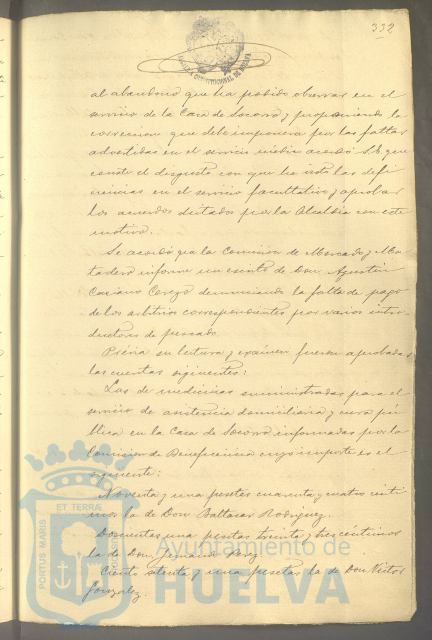 332
al abandono que ha podido observar en el
servicio de la Casa de Socorro y proponiendo la
correccion que debe imponerse por las faltas
advertidas en el servicio médico acordó S.E. que
conste el disgusto con que ha visto las defi
ciencias en el servicio facultativo y aprobar
los acuerdos dictados por la Alcaldia con este
motivo.
Se acordó que la Comision de Mercado y Ma-
tadero informe un escrito de Don Agustin
Cerezo denunciando la falta de pago
de los arbitrios correspondientes por varios intro-
ductores de pescado.
Prévia su lectura y exámen fueron aprobadas
las cuentas siguientes:
Las de medicinas suministradas para el
servicio de asistencia domiciliaria y cura pú-
blica en la Casa de Socorro informadas por la
Comision de Beneficencia cuyo importe es el
siguiente:
Noventa y una pesetas cuarenta y cuatro cénti
mos la de Don Baltasar Rodriguez.
Doscientas una pesetas treinta y tres céntimos
la de Don
Ciento setenta y una pesetas la de Don Victor
Gonzalez.
PORTUS MARIS ET TERRÆ
Ayuntamiento de
HUELVA